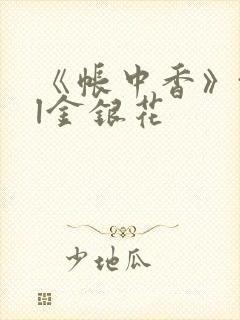 《帐中香》
|金银花
少地瓜